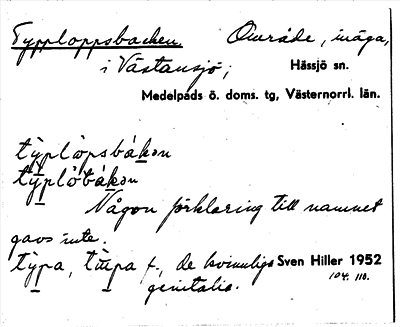 Typploppsbacken Område, inäga,
i Västansjö; Hässjö sn.
Medelpads ö. doms. tg, Västernorrl. län.
tỳplòpsbákən
tỳplòbákən
Någon förklaring till namnet
gavs inte.
tỳpa, tùpa f., de kvinnliga Sven Hiller 1952
genitalia. 104. 110.